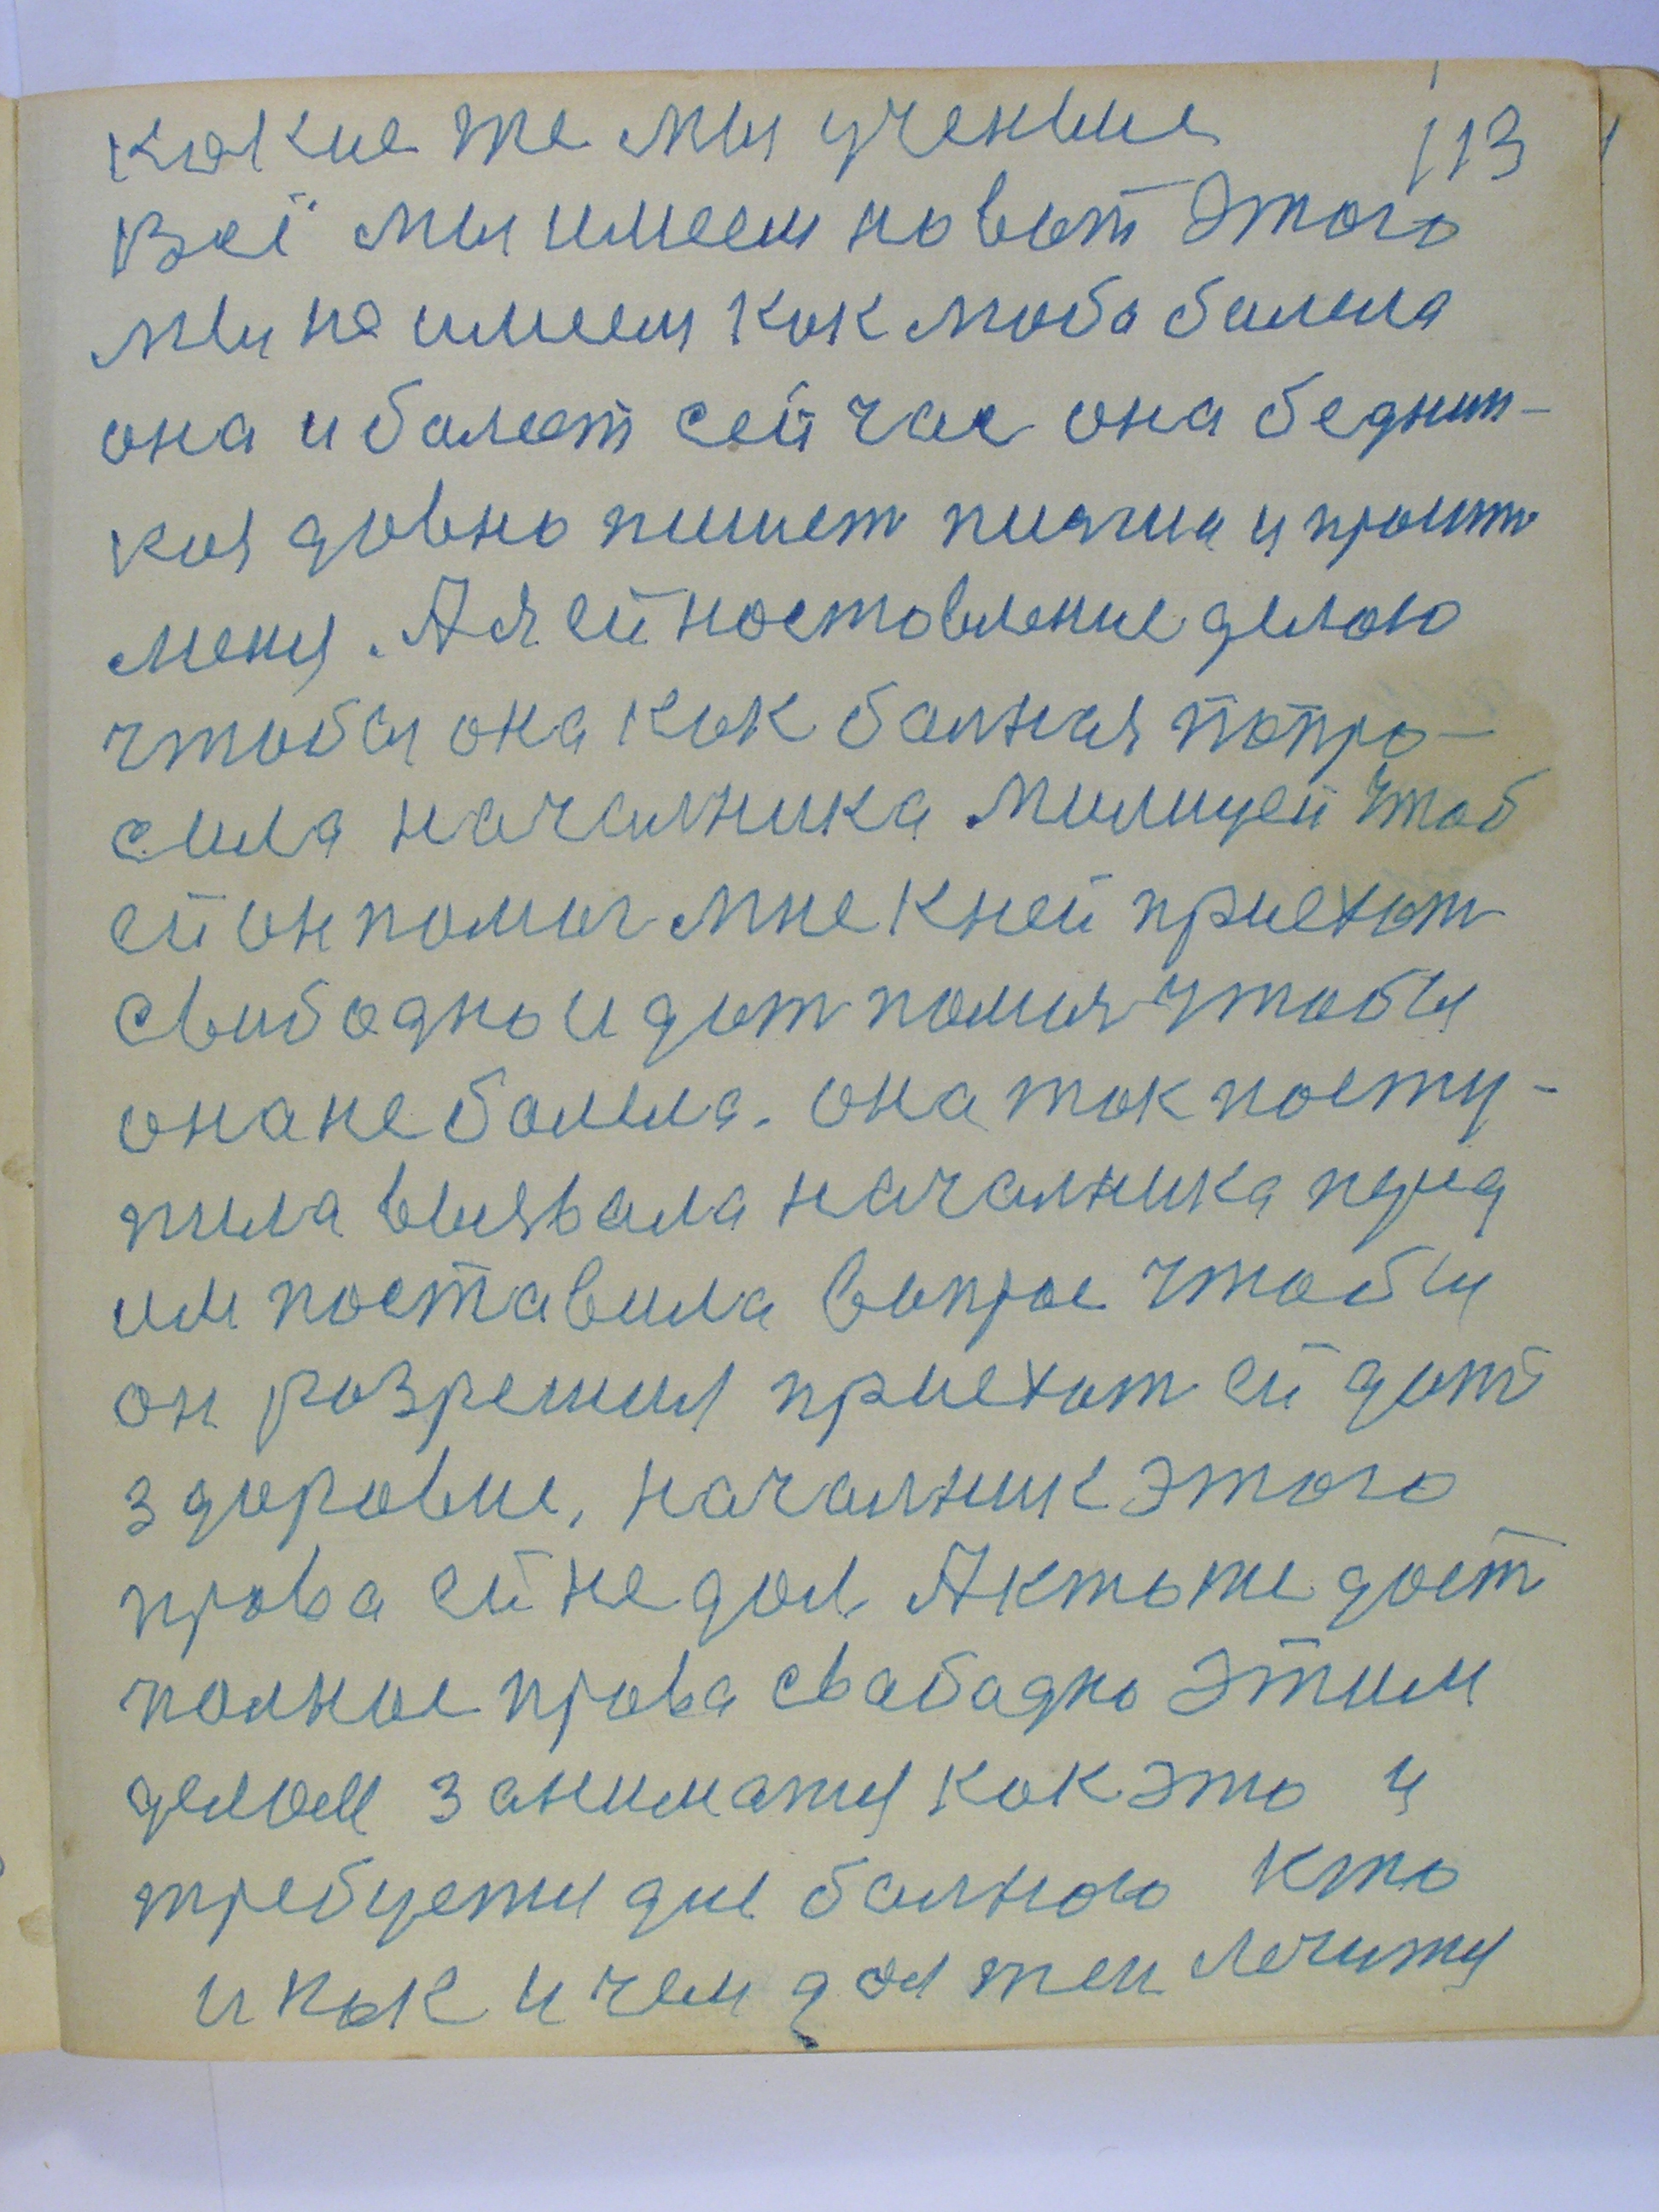 какие же мы ученые 113
Всё мы имеем но вот Этого
мы не имеем как люба балела
она и балеет сейчас она беднин-
кая давно пишет писma и просит
меня. А я ей наставление делаю
чтобы она как балная попро-
сила началника Милицей чтоб
ей он помог мне к ней приехат
свободно и дат помоч чтобы
она не балела. она так посту-
пила вызвала началника перед
им поставила вопрос чтобы
он разрешил приехат ей дат
здоровие, началник этого
права ей не дал А кто же даст
полное права свабадно Этим
делом заниматся как это и
требуется для балного кто
и как и чем должен лечится